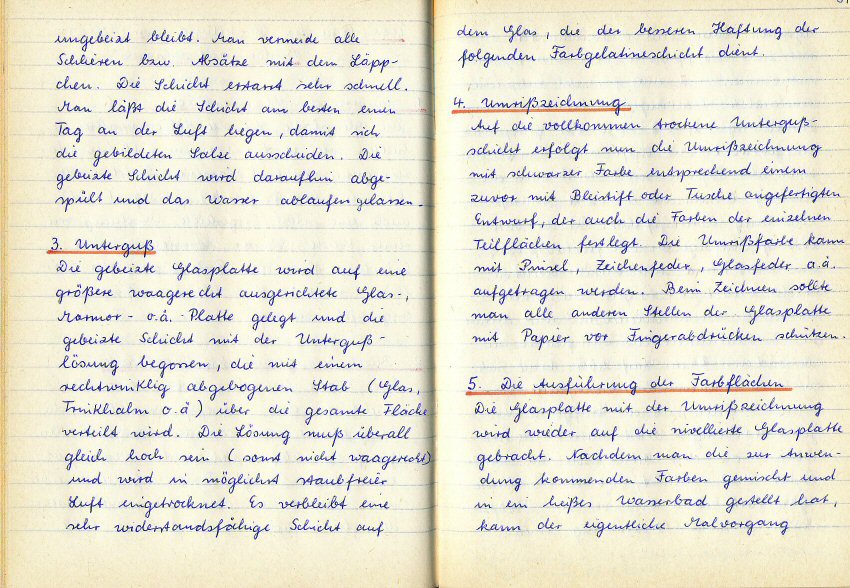 ungebeizt bleibt. Man vermeide alle
Schlieren bzw. Absätze mit dem Läpp-
chen. Die Schicht erstarrt sehr schnell.
Man läßt die Schicht am besten einen
Tag an der Luft liegen, damit sich
die gebildeten Salze ausscheiden. Die
gebeizte Schicht wird daraufhin abge-
spült und das Wasser ablaufen gelassen.
3. Unterguß
Die gebeizte Glasplatte wird auf eine
größere waagerecht ausgerichtete Glas-,
Marmor- o.ä.-Platte gelegt und die
gebeizte Schicht mit der Unterguß-
lösung begossen, die mit einem
rechtwinklig abgebogenen Stab (Glas,
Trinkhalm o.ä) über die gesamte Fläche
verteilt wird. Die Lösung muß überall
gleich hoch sein (sonst nicht waagerecht)
und wird in möglichst staubfreier
Luft eingetrocknet. Es verbleibt eine
sehr widerstandsfähige Schicht auf
dem Glas, die der besseren Haftung der
folgenden Farbgelatineschicht dient.
4. Umrißzeichnung
Auf die vollkommen trockene Unterguß-
schicht erfolgt nun die Umrißzeichnung
mit schwarzer Farbe entsprechend einem
zuvor mit Bleistift oder Tusche angefertigten
Entwurf, der auch die Farben der einzelnen
Teilflächen festlegt. Die Umrißfarbe kann
mit Pinsel, Zeichenfeder, Glasfeder o.ä.
aufgetragen werden. Beim Zeichnen sollte
man alle anderen Stellen der Glasplatte
mit Papier vor Fingerabdrücken schützen.
5. Die Ausführung der Farbflächen
Die Glasplatte mit der Umrißzeichnung
wird wieder auf die nivellierte Glasplatte
gebracht. Nachdem man die zur Anwen-
dung kommenden Farben gemischt und
in ein heißes Wasserbad gestellt hat,
kann der eigentliche Malvorgang